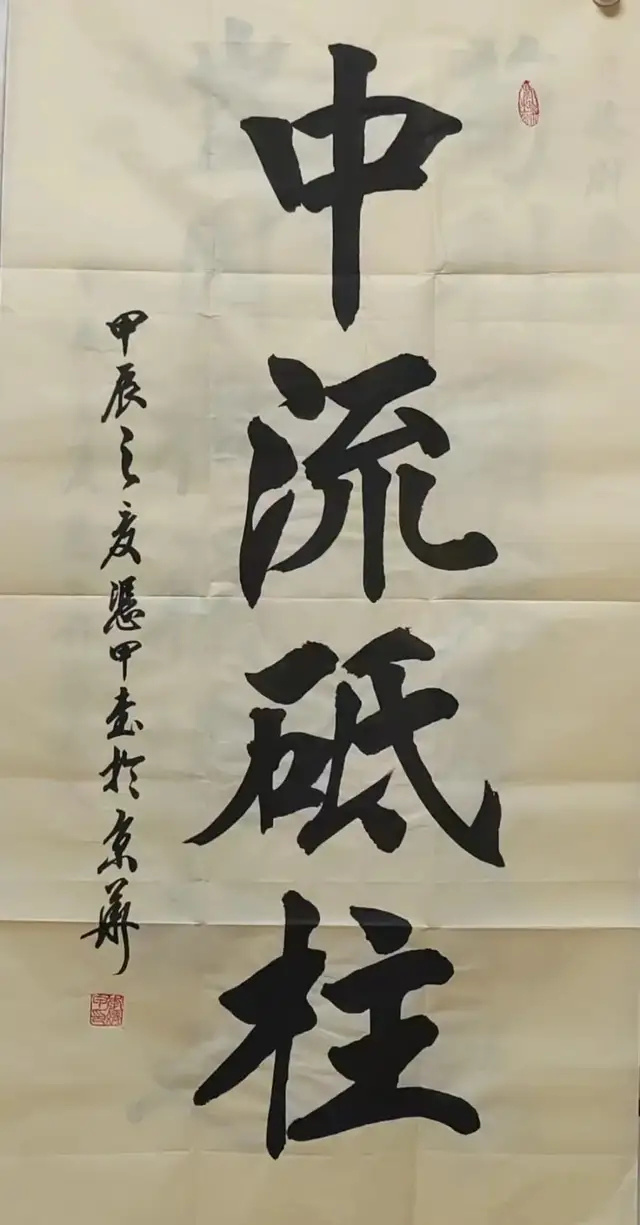 中流砥柱
甲辰之夏憑甲书於京華